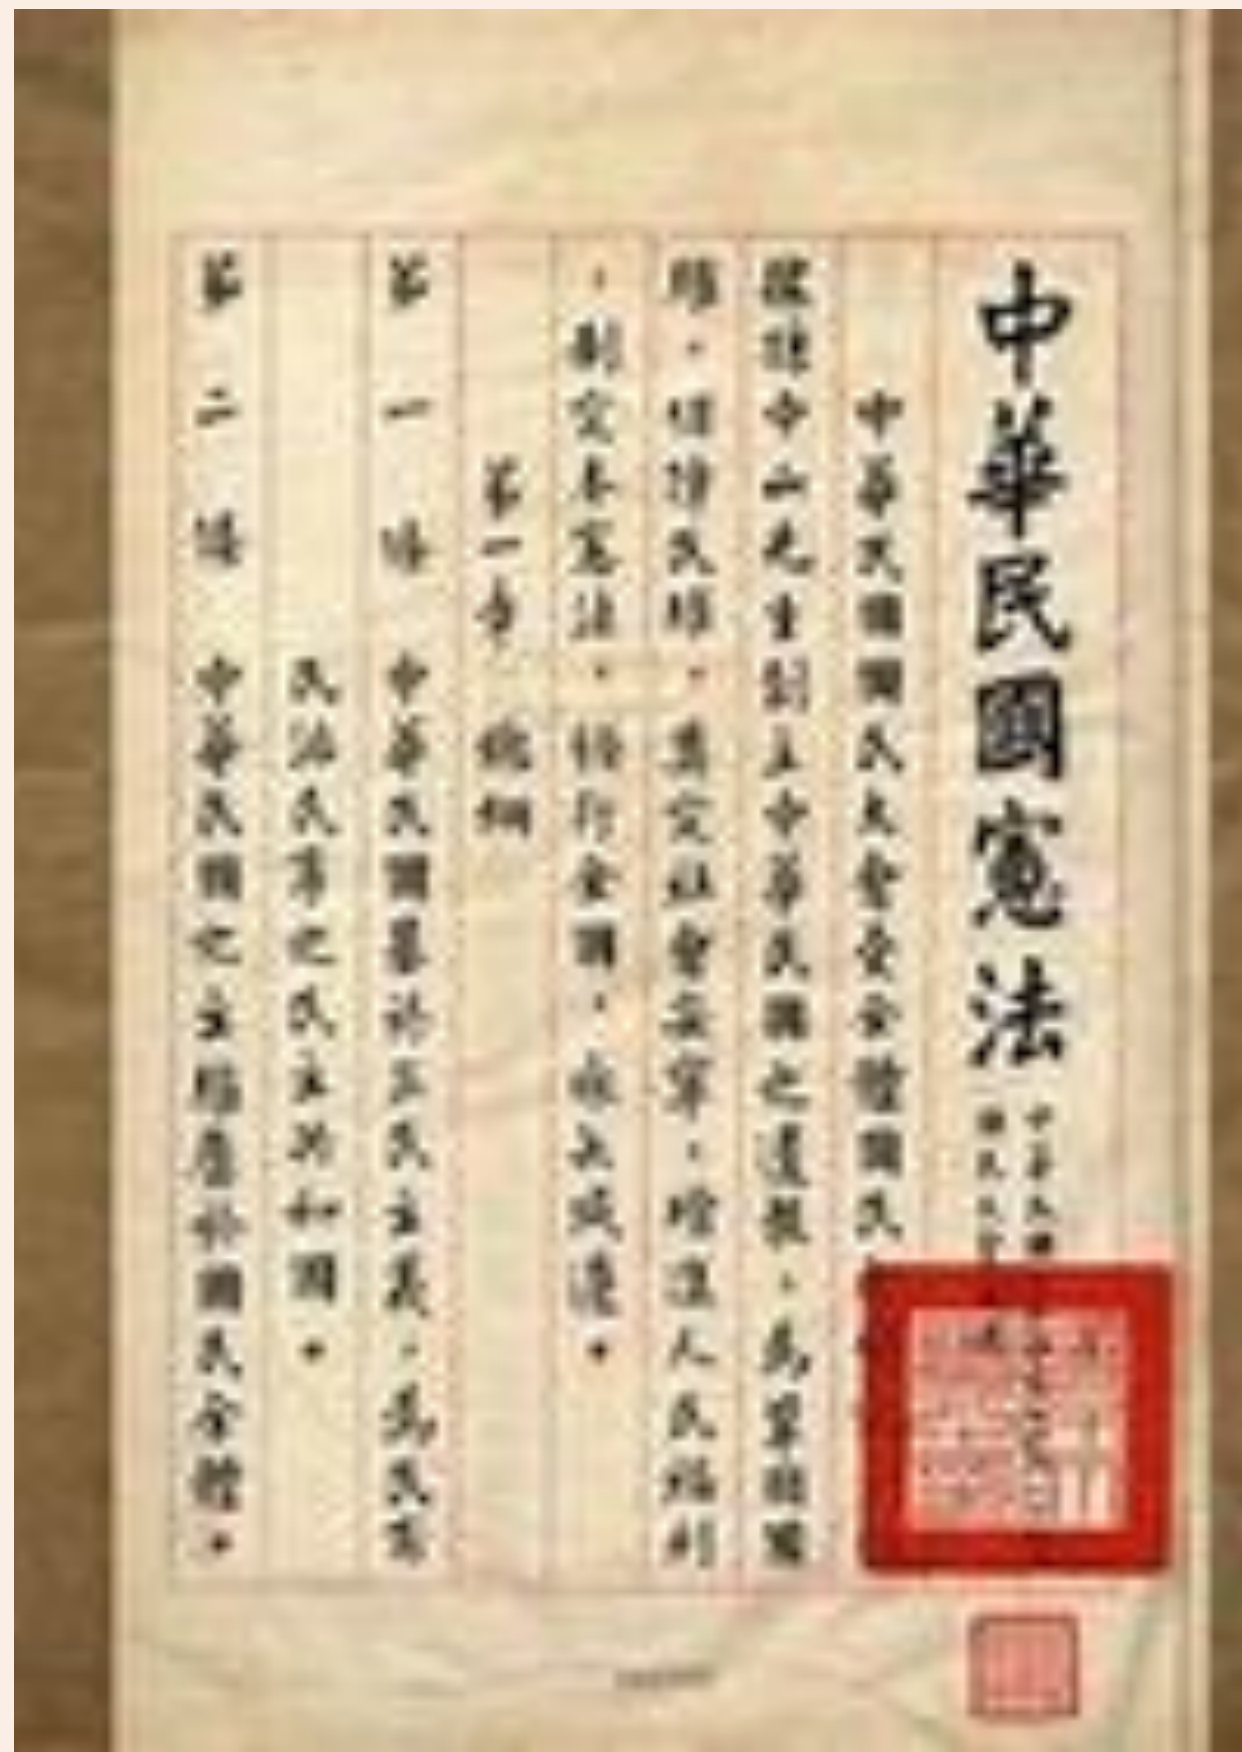 中華民國憲法
中華民國
國民大會
中華民國國民大會受全體國民
據孫中山先生創立中華民國之遺教,為鞏固國
權,保障民權,奠定社會安寧,增進人民福利
,制定本憲法,頒行全國,永矢咸遵。
第一章 總綱
第一條 中華民國基於三民主義,為民有
民治民享之民主共和國。
第二條 中華民國之主權屬於國民全體。